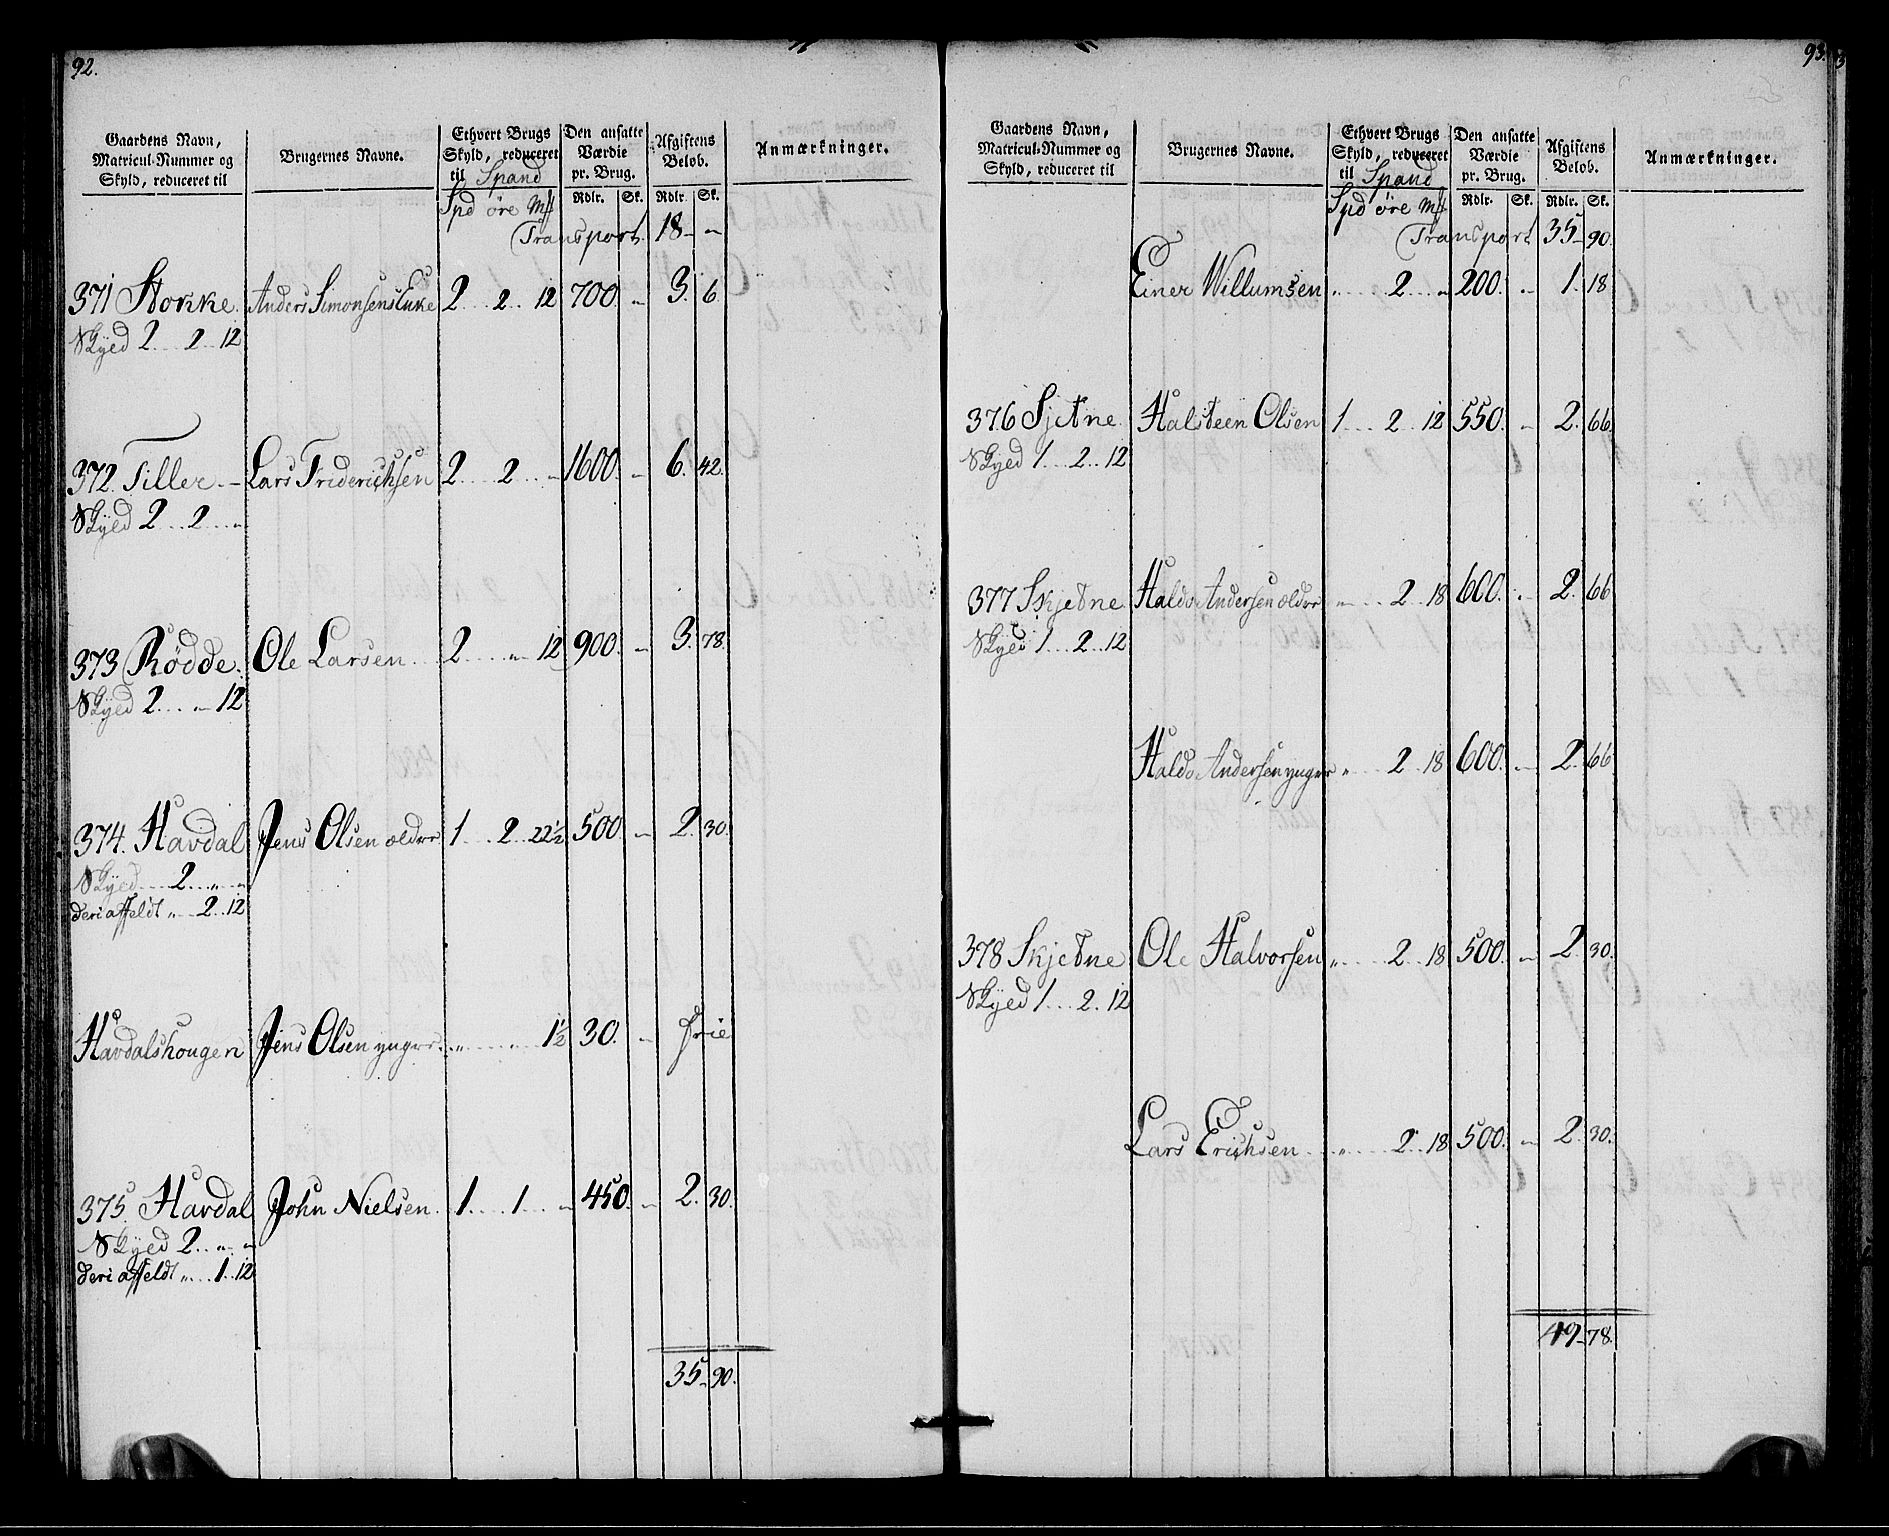 92.
Gaardens Navn, Matricul-Nummer og Skyld, reduceret til | Brugernes Navne. | Ethvert Brugs Skyld, reduceret til Spand | Den ansatte Værdie pr. Brug. | Afgiftens Beløb. | Anmærkninger.
Spd øre Mk | Rdlr. | Sk. | Rdlr. | Sk.
Transport 18 - „
371 Stokke. Anders Simonsens Enke 2 .. 2 .. 12 700. „ 3. 6.
Skyed 2 .. 2 .. 12
372. Tiller - Lars Friderichsen 2 .. 2 .. „ 1600. - 6. 42.
Skyed 2 ... 2 ... „
373 Rödde. Ole Larsen 2 ... „ 12 900. „ 3. 78.
Skyed 2 ... „ 12
374. Havdal Jens Olsen ældre 1 ... 2 .. 22½ 500. „ 2. 30.
Skyed .... 2 ... „ .. „
deri affeldt „ .. 2 .. 12
Havdalshougen Jens Olsen yngre. „ .... „ .. 1½ 30. - frie
375. Havdal John Nielsen. 1 .... 1 ... „ 450. „ 2. 30.
Skyed 2 .. „ .. „
deri affeldt „ ... 1 .. 12
35 - 90.
93.
Gaardens Navn, Matricul-Nummer og Skyld, reduceret til | Brugernes Navne. | Ethvert Brugs Skyld, reduceret til Spand | Den ansatte Værdie pr. Brug. | Afgiftens Beløb. | Anmærkninger.
Spd øre Mk | Rdlr. | Sk. | Rdlr. | Sk.
Transport 35 - 90.
Einer Willumsen „ ... 2 ... „ 200. „ 1. 18
376 Sjetne. Halsteen Olsen 1 ... 2 .. 12 550. „ 2. 66.
Skyed 1 ... 2 .. 12
377 Skjetne Haldo Andersen ældre „ ... 2 .. 18 600. „ 2. 66
Skyed 1 ... 2 .. 12
Haldo Andersen yngre „ .... 2 .. 18 600. „ 2. 66
378 Skjetne Ole Halvorsen „ .... 2 .. 18 500. „ 2. 30.
Skyed 1 ... 2 . 12
Lars Erichsen „ .... 2 .. 18 500. „ 2. 30.
49 - 78.